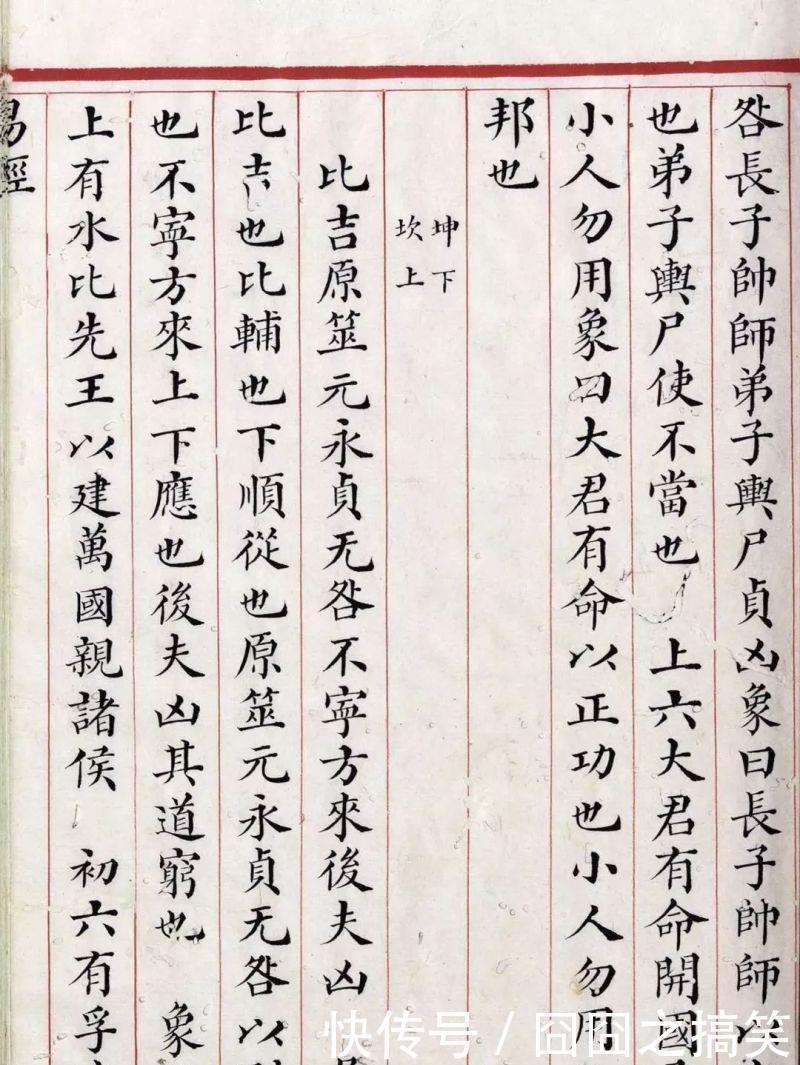 咎長子帥師弟子輿尸貞凶象曰長子帥師以
也弟子輿尸使不當也 上六大君有命開國
小人勿用象曰大君有命以正功也小人勿用
邦也
坤下
坎上
比吉原筮元永貞无咎不寧方來後夫凶
比吉也比輔也下順從也原筮元永貞无咎以
也不寧方來上下應也後夫凶其道窮也 象
上有水比先王以建萬國親諸侯 初六有孚
易經
快传号 / 囧囧之搞笑